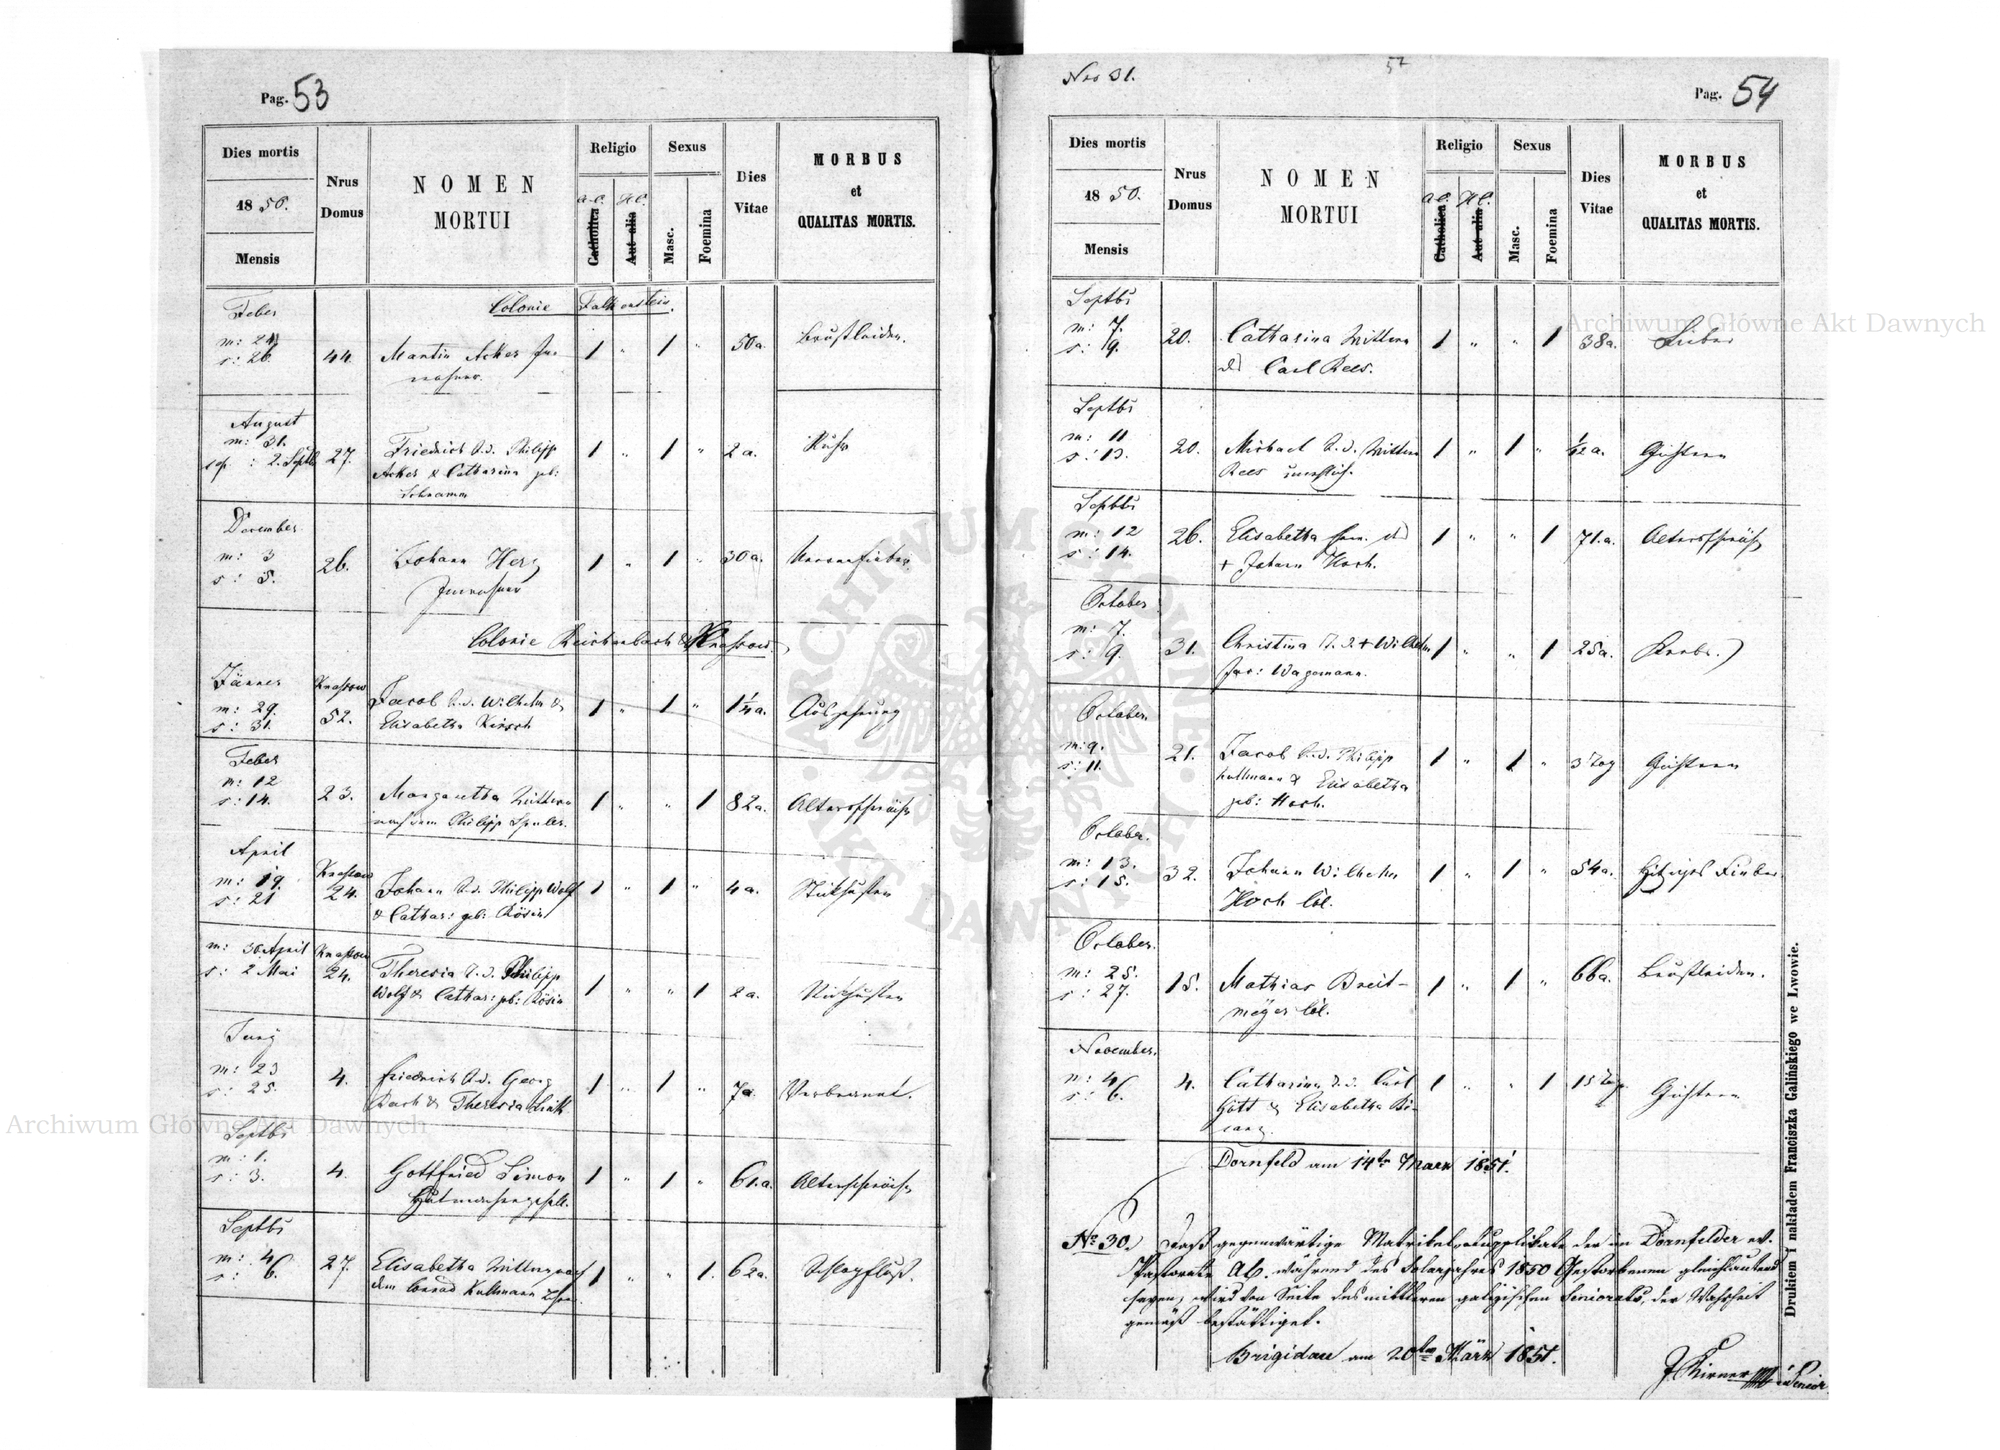 Pag. 53
Dies mortis
1850.
Mensis
Nrus
Domus
NOMEN
MORTUI
Religio
A.C.
H.C.
Catholica
Aut alia
Sexus
Masc.
Foemina
Dies
Vitae
MORBUS
et
QUALITAS MORTIS.
Colonie Falkenstein.
Feber
m: 24
s: 26.
44.
Martin Acker In-
wohner.
1 " 1 "
50 a.
Brustleiden.
August
m: 31.
s: 2. Septb
27.
Friedrich S.d. Philipp
Acker & Catharina geb:
Schramm
1 " 1 "
2 a.
Ruhr
December
m: 3
s: 5.
26.
Johann Herz
Inwohner
1 " 1 "
30 a.
Nervenfieber
Colonie Reichenbach & Krassow.
Jänner
m: 29.
s: 31.
Krassow
52.
Jacob S.d. Wilhelm &
Elisabetha Kirsch
1 " 1 "
1¼ a.
Auszehrung
Feber
m: 12
s: 14.
23.
Margaretha Wittwe
nach dem Philipp Spuler.
1 " " 1
82 a.
Altersschwäche
April
m: 19.
s: 21
Krassow
24.
Johann S.d. Philipp Wolf
& Cathar: geb: Rösin
1 " 1 "
4 a.
Stickhusten
m: 30 April
s: 2 Mai
Krassow
24.
Theresia T.d. Philipp
Wolf & Cathar: geb: Rösin
1 " " 1
2 a.
Stickhusten
Juny
m: 23
s: 25.
4.
Friedrich S.d. Georg
Bach & Theresia
1 " 1 "
7 a.
Verbrannt.
Septbr
m: 1.
s: 3.
4.
Gottfried Simon
Hutmachergesell.
1 " 1 "
61. a.
Altersschwäche
Septbr
m: 4
s: 6.
27.
Elisabetha Wittwe nach
dem Conrad Kullmann
1 " " 1.
62 a.
Schlagfluß.
Nro 31.
52
Pag. 54
Dies mortis
1850.
Mensis
Nrus
Domus
NOMEN
MORTUI
Religio
A.C.
H.C.
Catholica
Aut alia
Sexus
Masc.
Foemina
Dies
Vitae
MORBUS
et
QUALITAS MORTIS.
Septbr
m: 7.
s: 9.
20.
Catharina Wittwe
d. Carl Rees.
1 " " 1
38 a.
Fieber
Septbr
m: 11
s: 13.
20.
Michael S.d. Wittwe
Rees unehlich.
1 " 1 "
1/12 a.
Gichtern
Septbr
m: 12
s: 14.
26.
Elisabetha
+ Johann Hoch.
1 " " 1
71. a.
Altersschwäche
October
m: 7.
s: 9.
31.
Christina T.d. + Wilhelm
Wagemann.
1 " " 1
25 a.
October.
m: 9.
s: 11.
21.
Jacob S.d. Philipp
Kullmann & Elisabetha
geb: Hoch.
1 " 1 "
3 Tag
Gichtern
October.
m: 13.
s: 15.
32.
Johann Wilhelm
Hoch Col.
1 " 1 "
54 a.
Hitziges Fieber.
October.
m: 25.
s: 27.
15.
Mathias Breit-
meyer Col.
1 " 1 "
66 a.
Brustleiden.
November.
m: 4
s: 6.
4.
Catharina T.d. Carl
Gött & Elisabetha
1 " " 1
15 Tag
Gichtern
Dornfeld am 14ten März 1851.
No 30. Daß gegenwärtige Matrikelduplikate der im Dornfelder ev.
Pastorate A.C. während des Solarjahres 1850 Gestorbenen gleichlautend
seyen, wird von Seite des mittleren galizischen Seniorats, der Wahrheit
gemäß bestättiget.
Brigidau am 20ten März 1851.
Senior
Drukiem i nakładem Franciszka Galińskiego we Lwowie.
Archiwum Główne Akt Dawnych
Archiwum Główne Akt Dawnych
ARCHIWUM GŁÓWNE
AKT DAWNYCH